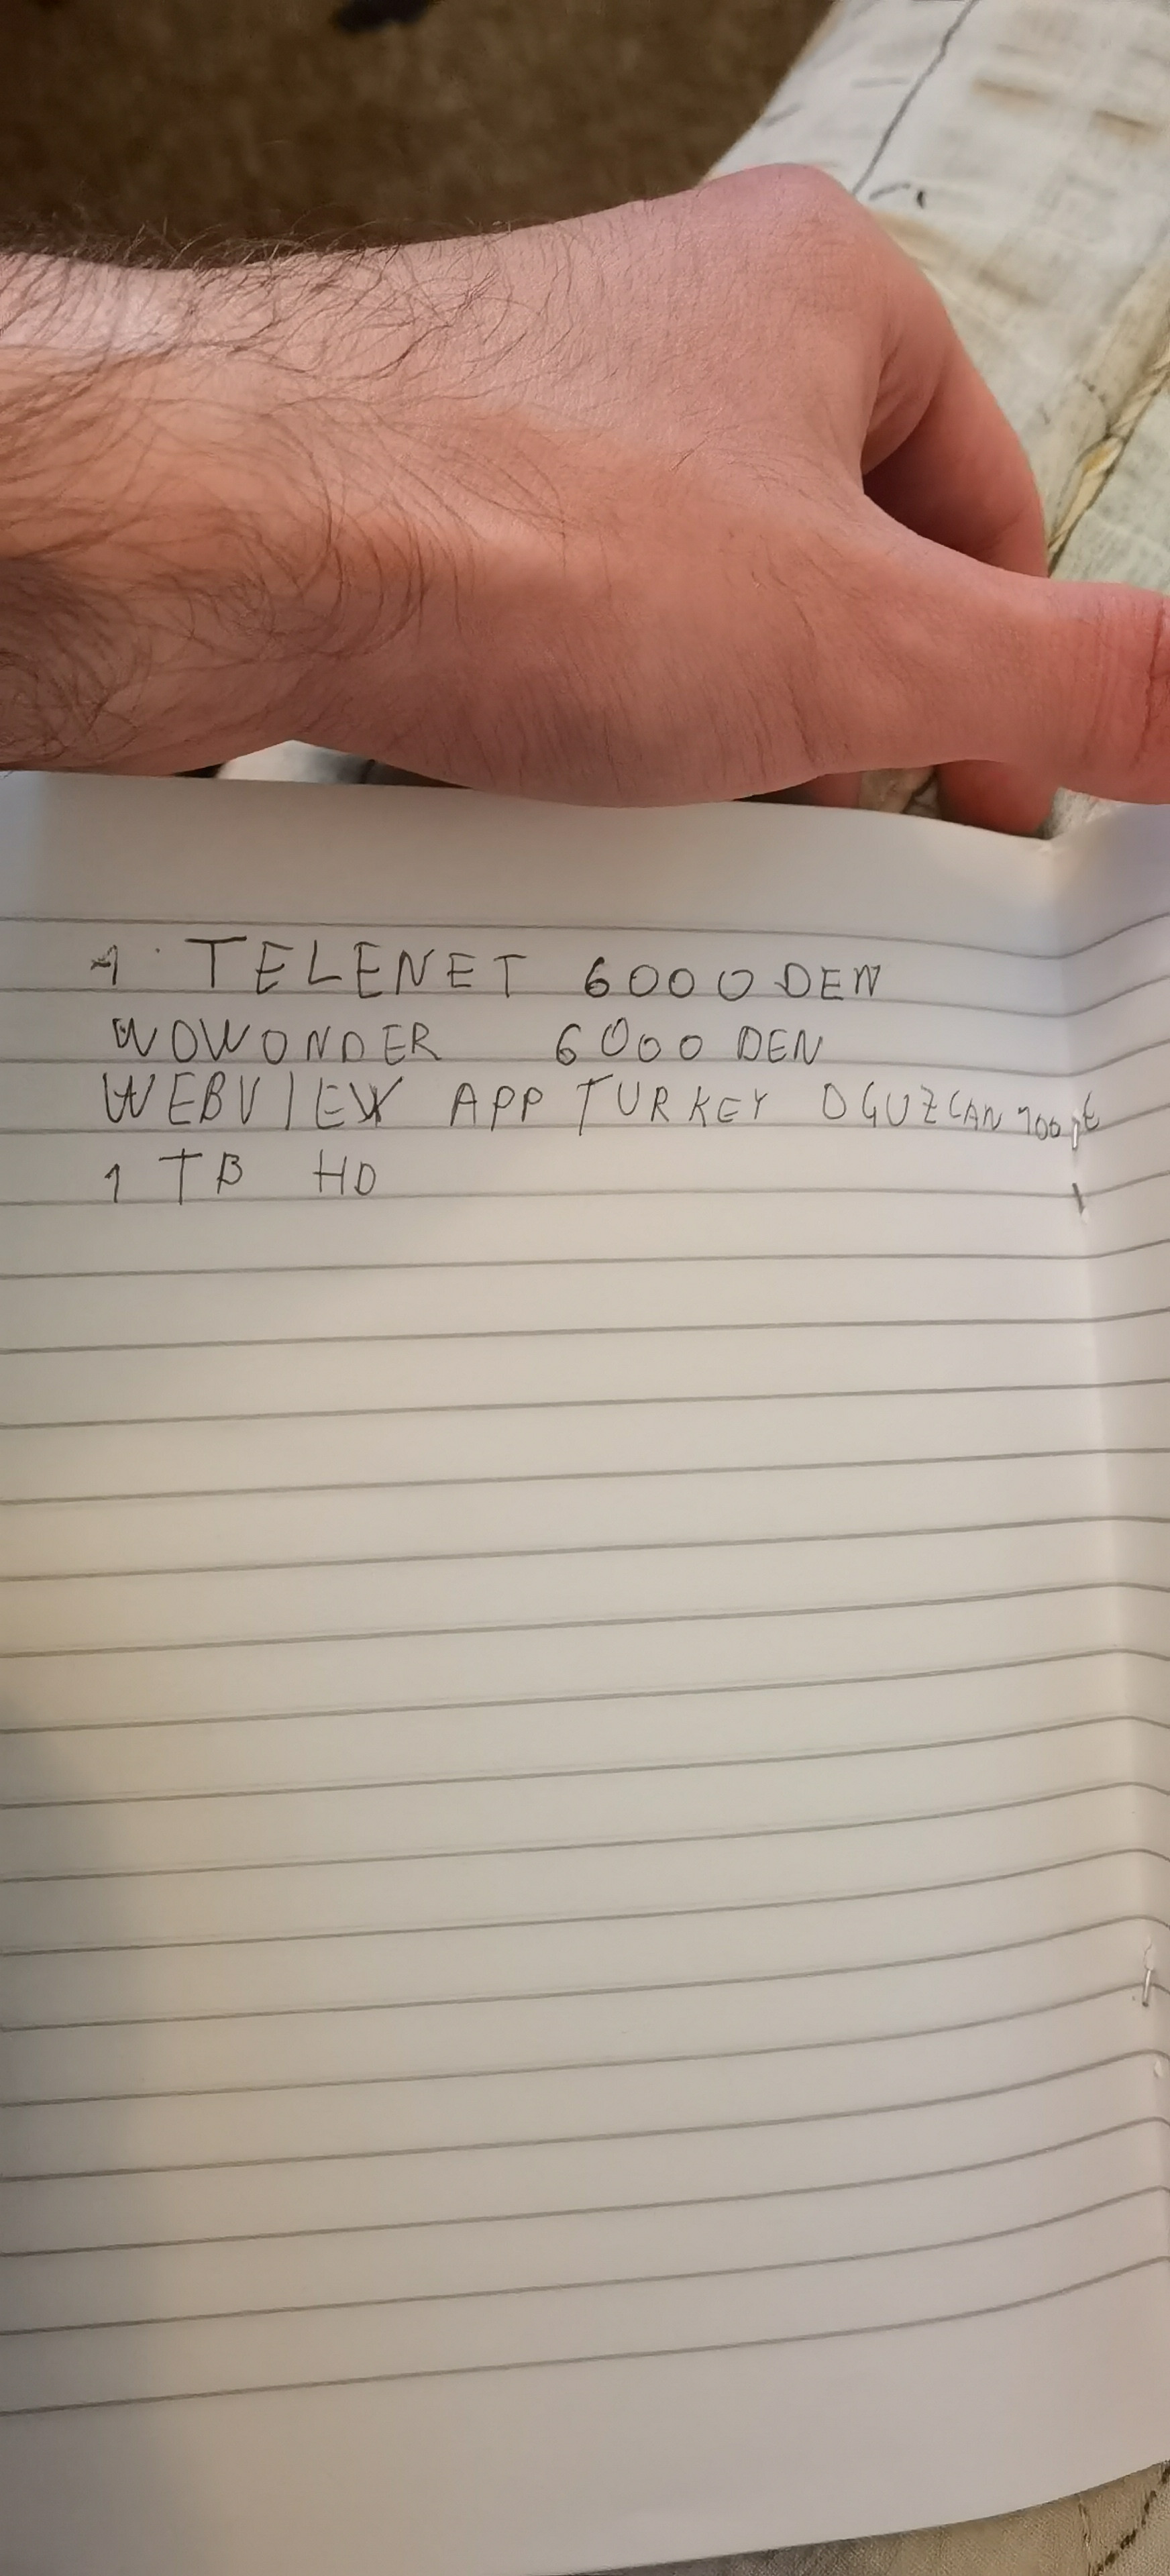 1. TELENET 6000 DEN
WOWONDER 6000 DEN
WEBVIEW APP TURKEY OGUZCAN
1 TB HD